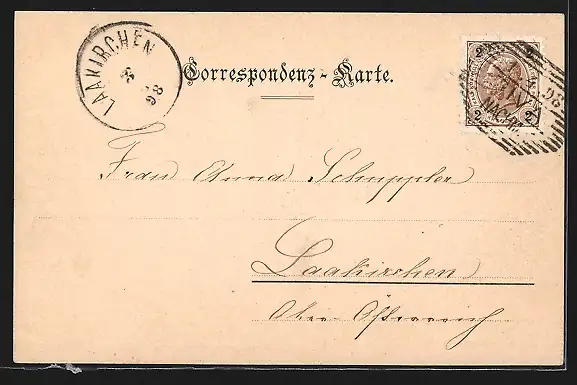 LAAKIRCHEN
98
Correspondenz-Karte.
2 2
2 2
98
NACHM
Frau Anna Schuppler
Laakirchen
Ober Österreich